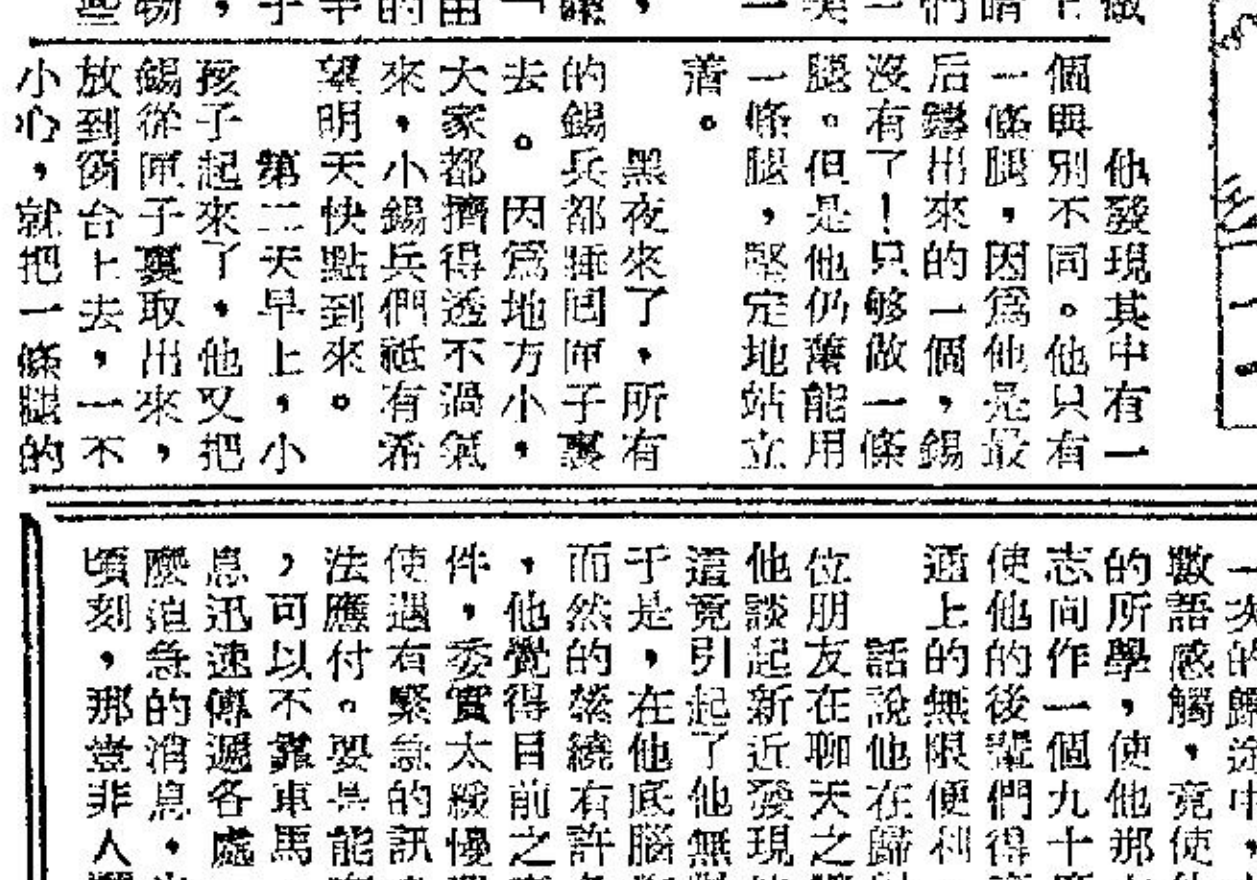 他發現其中有一
個與別不同。他只有
一條腿，因爲他是最
后鑄出來的一個，錫
沒有了！只够做一條
腿。但是他仍舊能用
一條腿，堅定地站立
着。
黑夜來了，所有
的錫兵都睡回匣子裏
去。因爲地方小，
大家都擠得透不過氣
來，小錫兵們祗有希
望明天快點到來。
第二天早上，小
孩子起來了，他又把
錫從匣子裏取出來，
放到窗台上去，一不
小心，就把一條腿的
一次的歸途中，
數語感觸，竟使
的所學，使他那
志向作一個九十
使他的後輩們得
通上的無限便利
話說他在歸
位朋友在聊天之
他談起新近發現
這竟引起了他無
于是，在他底腦
而然的縈繞有許
，他覺得目前之
件，委實太緩慢
使遇有緊急的訊
法應付。要是能
，可以不靠車馬
息迅速傳遞各處
麽迫急的消息，
頃刻，那豈非人